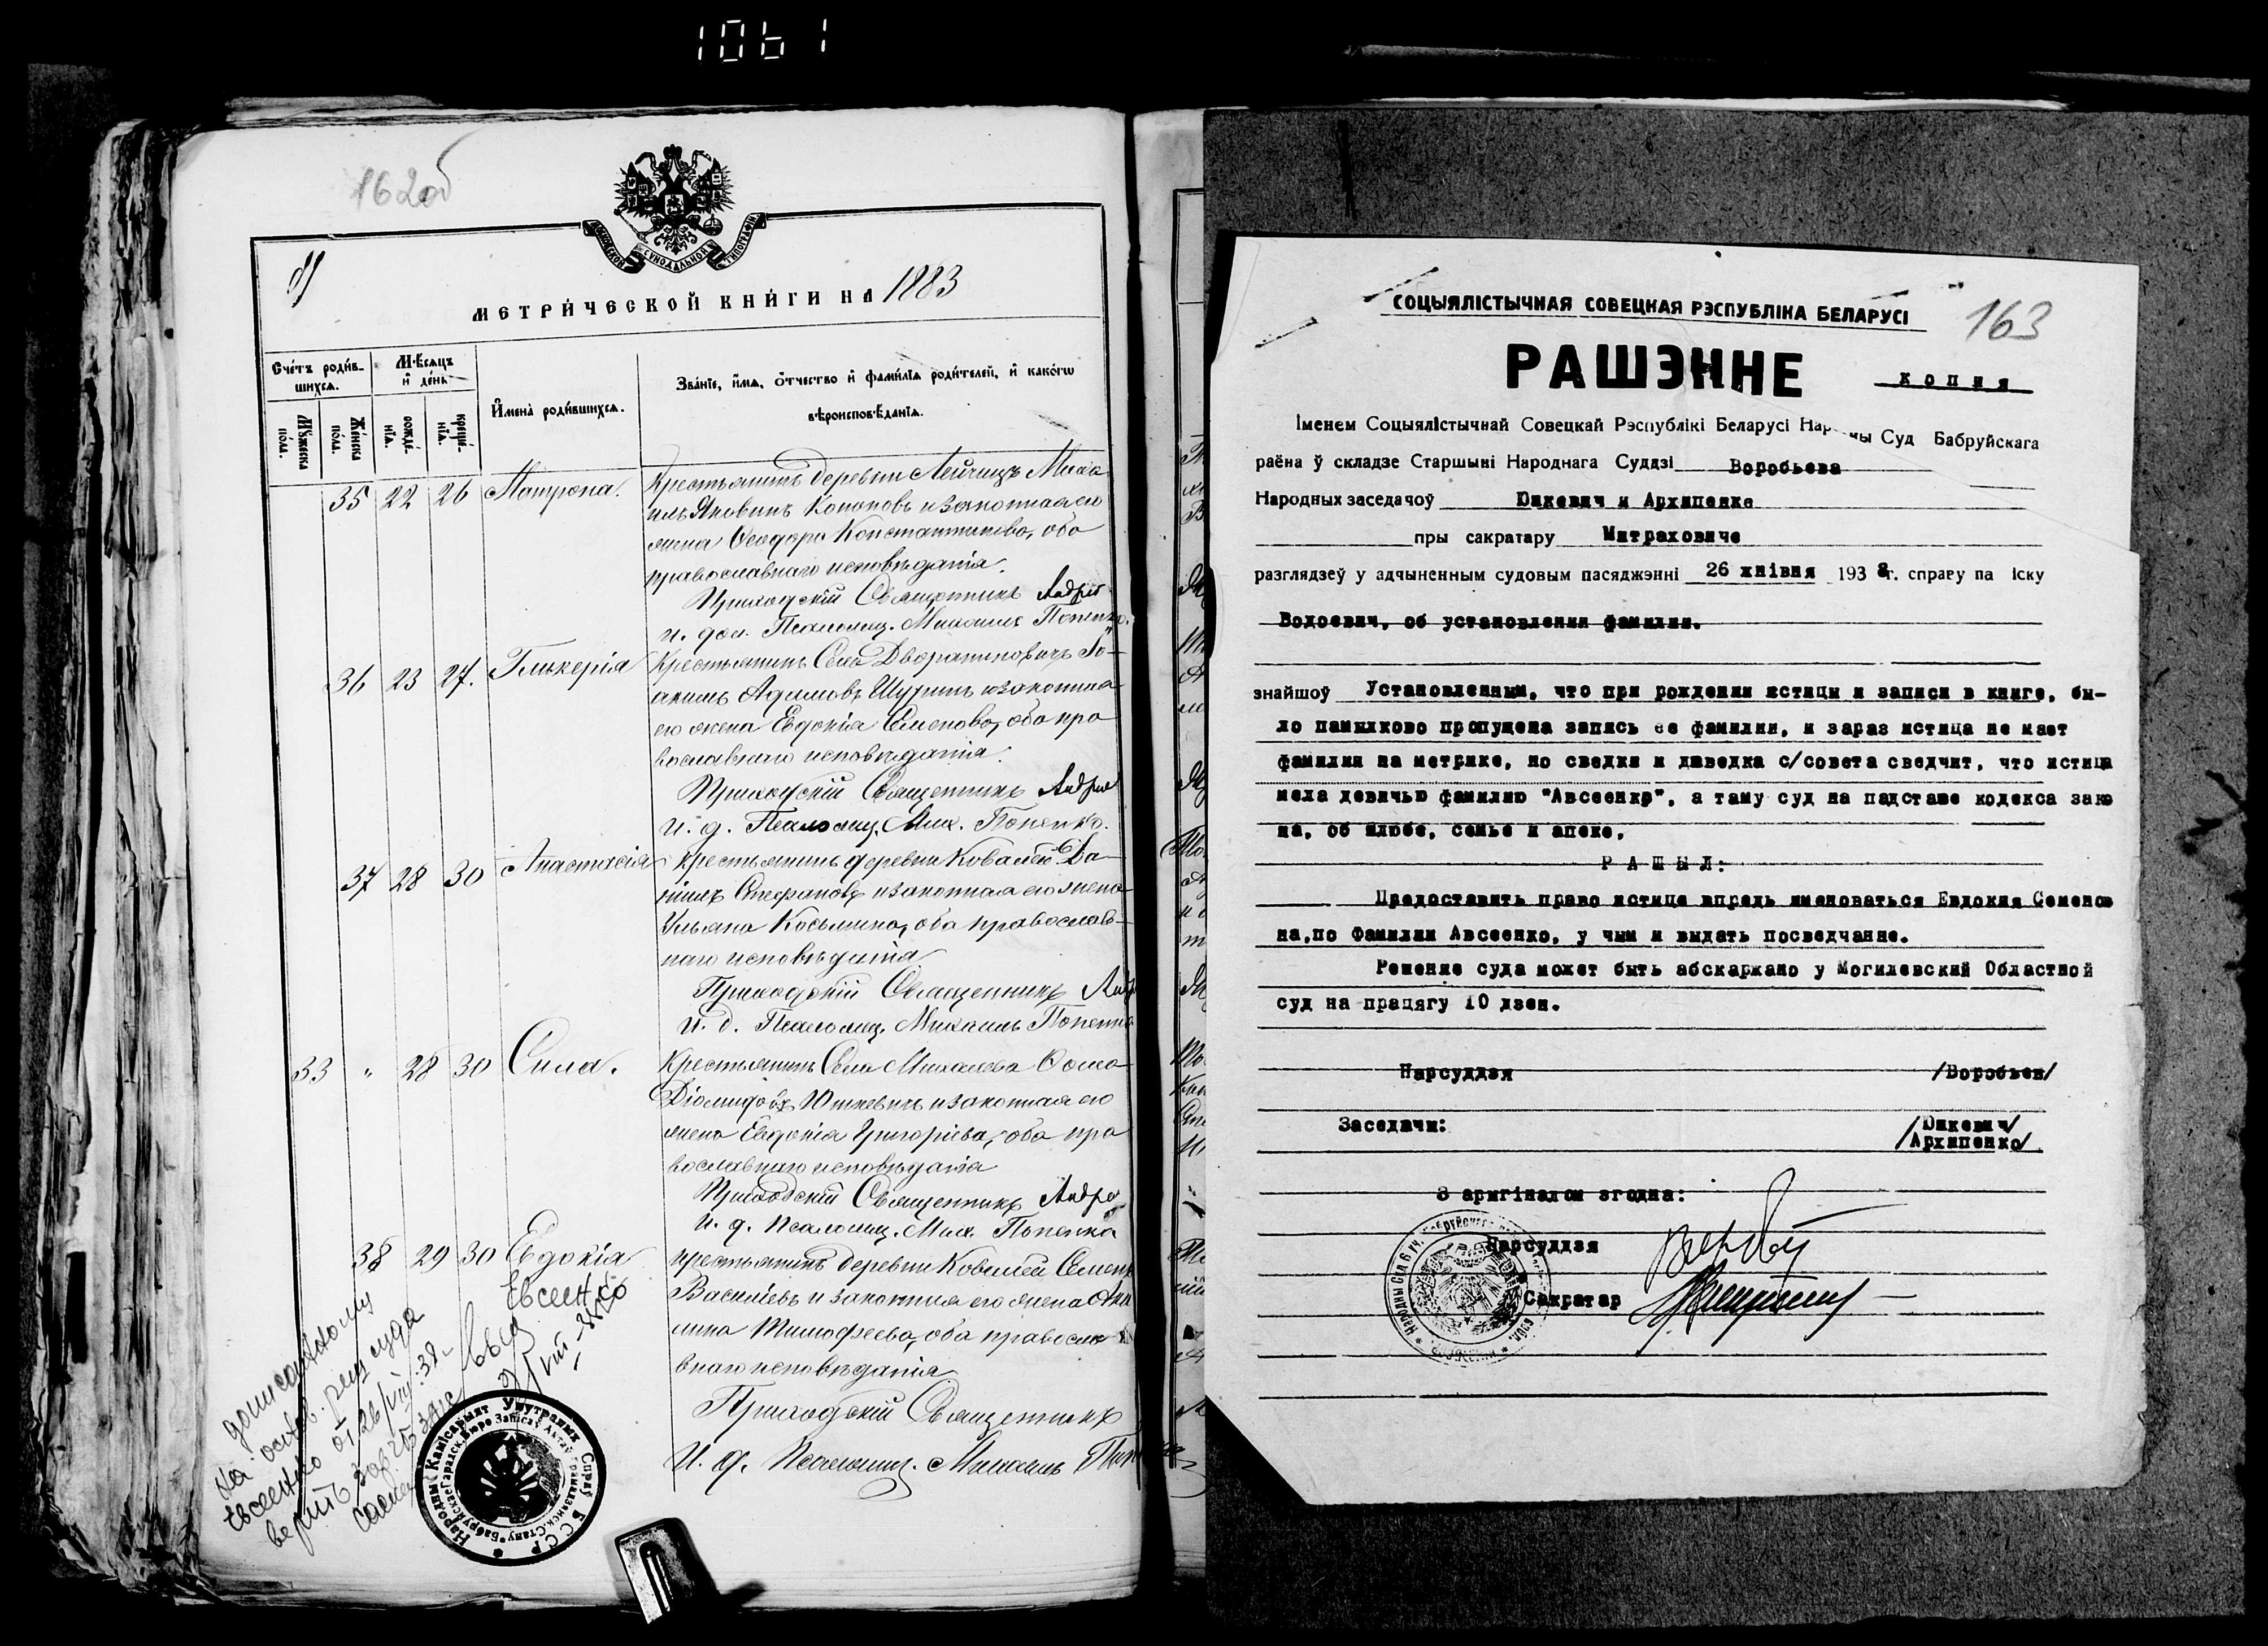 1061
162об
МОСКОВСКОЙ СѴНОДАЛЬНОЙ ТИПОГРАФІИ
МЕТРИЧЕСКОЙ КНИГИ НА 1883
Счетъ родив-
шихся.
Мѣсяцъ
и день
Имена родившихся.
Званіе, имя, отчество и фамилія родителей, и какогѡ
вѣроисповѣданія.
Мужеска
пола.
Женска
пола.
рожде-
нія.
креще-
нія.
35 22 26 Матрона. Крестьянинъ деревни Лейчицъ Миха
илъ Яковинъ Кононовъ и законная его
жена Ѳеодора Константинова, оба
православнаго исповѣданія.
Приходскій Священникъ Андрей
и. дол. Псаломщ. Михаилъ Попенко.
36 23 27. Гликерія Крестьянинъ Села Дворяниновичъ Іо-
акимъ Адамовъ Шуринъ и законная
его жена Евдокія Семенова, оба пра
вославнаго исповѣданія.
Приходскій Священникъ Андрей
и. д. Псаломщ. Мих. Попенко.
37 28 30 Анастасія Крестьянинъ деревни Ковалей Да-
ніилъ Стефановъ и законная его жена
Ульяна Косьмина, оба православ-
наго исповѣданія
Приходскій Священникъ Андр
и. д. Псаломщ. Михаилъ Попенко
33 " 28 30 Сила. Крестьянинъ Села Михалева Ѳома
Діомидовъ Юшкевичъ и законная его
жена Евдокія Григорьева, оба пра
вославнаго исповѣданія
Приходскій Священникъ Андре
и. д. Псаломщ. Мих. Попенко
38 29 30 Евдокія крестьянинъ деревни Ковалей Семенъ
Евсеенко
Васильевъ и законная его жена Аки
лина Тимофеева, оба правосла-
внаго исповѣданія
Приходскій Священникъ
И. д. Псаломщ. Михаилъ Поп
на основ. реш суда
Евсеенко от 26/VIII-38
Народны Камісарыят Унутраных Спраў БССР
Бабруйскае Гарадск. Бюро Запісаў Актаў Грамадзянск. Стану
СОЦЫЯЛІСТЫЧНАЯ СОВЕЦКАЯ РЭСПУБЛІКА БЕЛАРУСІ
163
РАШЭННЕ
копия
Іменем Соцыялістычнай Совецкай Рэспублікі Беларусі Народны Суд Бабруйскага
раёна ў складзе Старшыні Народнага Суддзі Воробьева
Народных заседачоў Юшкевич и Архипенко
пры сакратару Митраховиче
разглядзеў у адчыненным судовым пасяджэнні 26 жнівня 1938 г. справу па іску
Водоевич, об установлении фамилии.
знайшоў Установленным, что при рождении истицы и записи в книге, бы-
ло памылково пропущена запись ее фамилии, и зараз истица не мает
фамилии на метрике, но сведки и даведка с/совета сведчит, что истица
мела девичью фамилию "Авсеенко", а таму суд на падставе кодекса зако
на, об шлюбе, семье и апеке,
РАШЫЛ:
Предоставить право истице впредь именоваться Евдокия Семенов
на, по фамилии Авсеенко, у чым и выдать посведчание.
Решение суда может быть абскаржано у Могилевский Областной
суд на працягу 10 дзен.
Нарсуддзя /Воробьев/
Заседачи: /Юшкевич/
/Архипенко/.
З аригіналом згодна:
Нарсуддзя
Сакратар